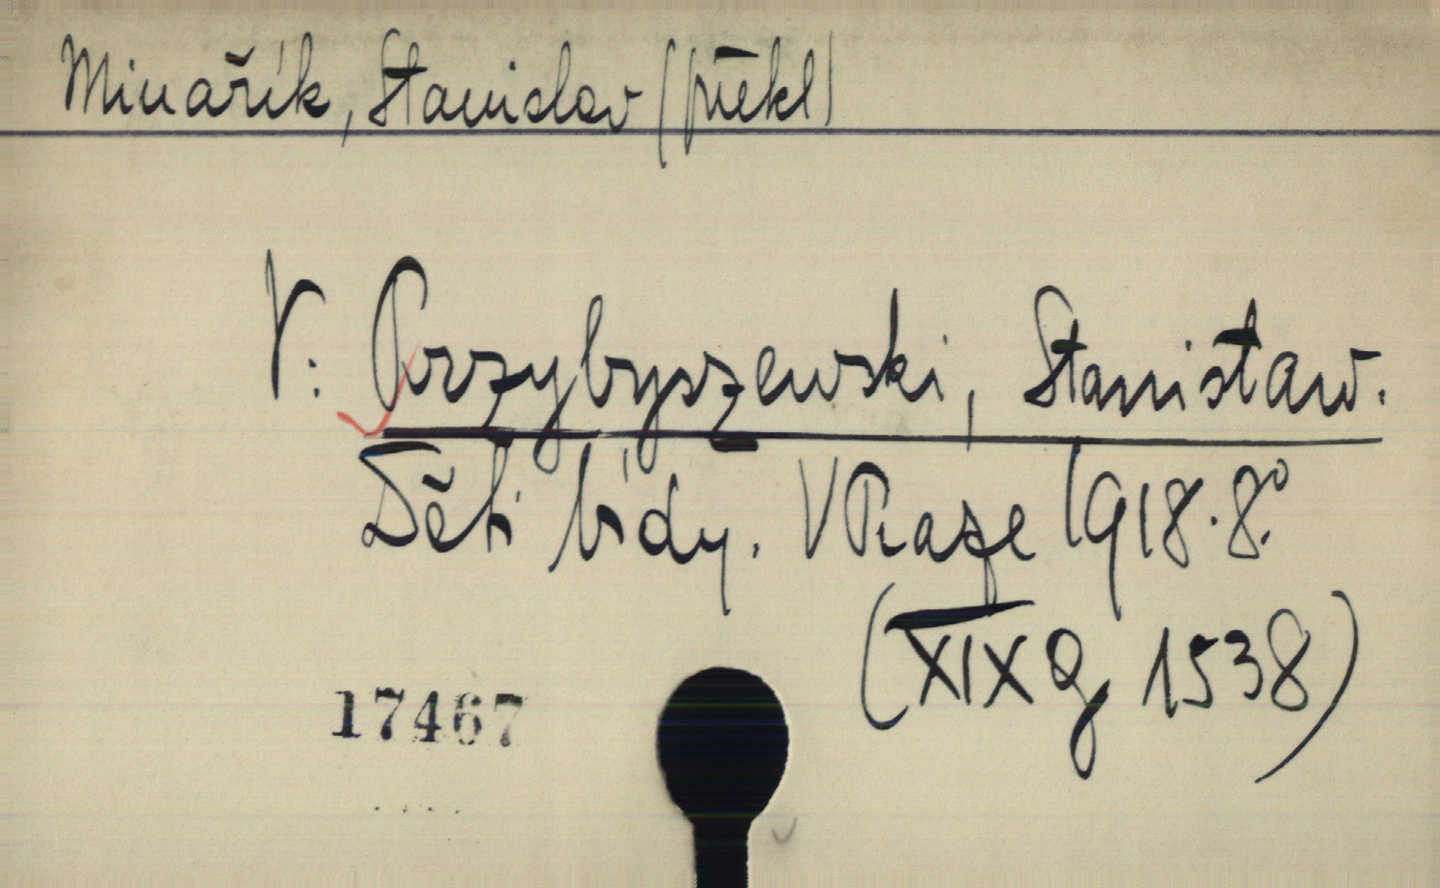 Minařík, Stanislav (překl)
V: Przybyszewski, Stanisław.
Děti bídy. V Praze 1918. 8°.
(XIX Q 1538)
17467